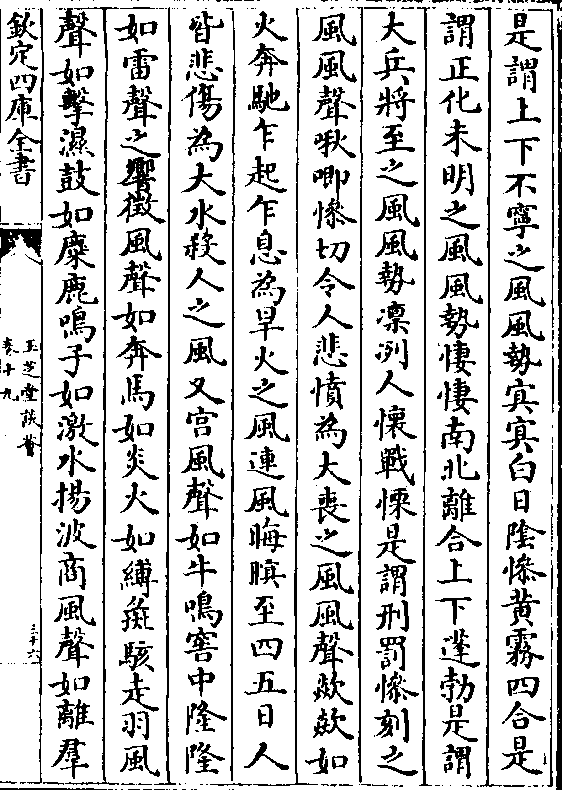 是謂上下不寧之風風勢寘寘白日陰慘黄霧四合是
謂正化未明之風風勢悽悽南北離合上下蓬勃是謂
大兵將至之風風勢凛冽人懷戰慄是謂刑罰慘刻之
風風聲啾唧慘切令人悲憤為大喪之風風聲欻欻如
火奔馳乍起乍息為旱火之風連風晦暝至四五日人
皆悲傷為大水殺人之風又宫風聲如牛鳴窖中隆隆
如雷聲之響徵風聲如奔馬如炎火如縛彘駭走羽風
聲如擊濕鼓如麋鹿鳴子如激水揚波商風聲如離羣
欽定四庫全書
玉芝堂談薈
卷十九
三十六